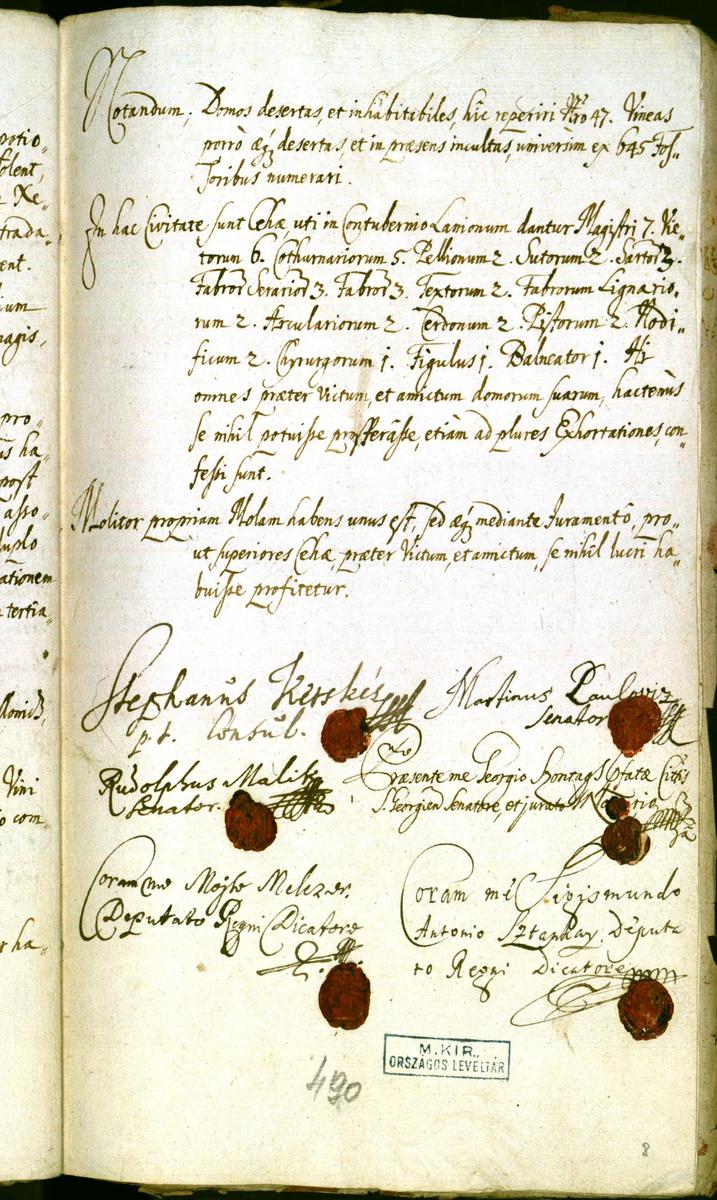 Notandum, Domos desertas, et inhabitabiles, hic reperiri Nro 47. Vineas
porrò æq desertas, et in præsens incultas, universim ex 645 Fos-
soribus numerari.
In hac Civitate sunt Cehæ, uti in Contubernio Lanionum dantur Magistri 7. Vie-
torum 6. Cothurnariorum 5. Pellionum 2. Sutorum 2. Sartor 3.
Fabror Serarior 3. Fabror 3. Textorum 2. Fabrorum Lignario-
rum 2. Arculariorum 2. Cerdonum 2. Pistorum 2. Nodi-
ficum 2. Chyrurgorum 1. Figulus 1. Balneator 1. Hi
omnes præter victum, et amictum domorum suarum, hactenus
se nihil potuisse prosperasse, etiam ad plures Exhortationes, con-
fessi sunt.
Molitor propriam Molam habens unus est, sed æq mediante Juramento, pro-
ut superiores Cehæ, præter Victum, et amictum, se nihil lucri ha-
buisse profitetur.
Stephanus Kerskes
p. t. Consul.
Martinus Pauloviz
Senator
Rudolphus Malik
Senator.
Præsente me Georgio Sontags
S. Georgien Senatore, et jurato Notario
Coram me Melczer
Deputato Regni Dicatore
Coram me Sigismundo
Antonio Sztankay, Deputa
to Regni Dicatore
M. KIR.
ORSZÁGOS LEVÉLTÁR
490
8